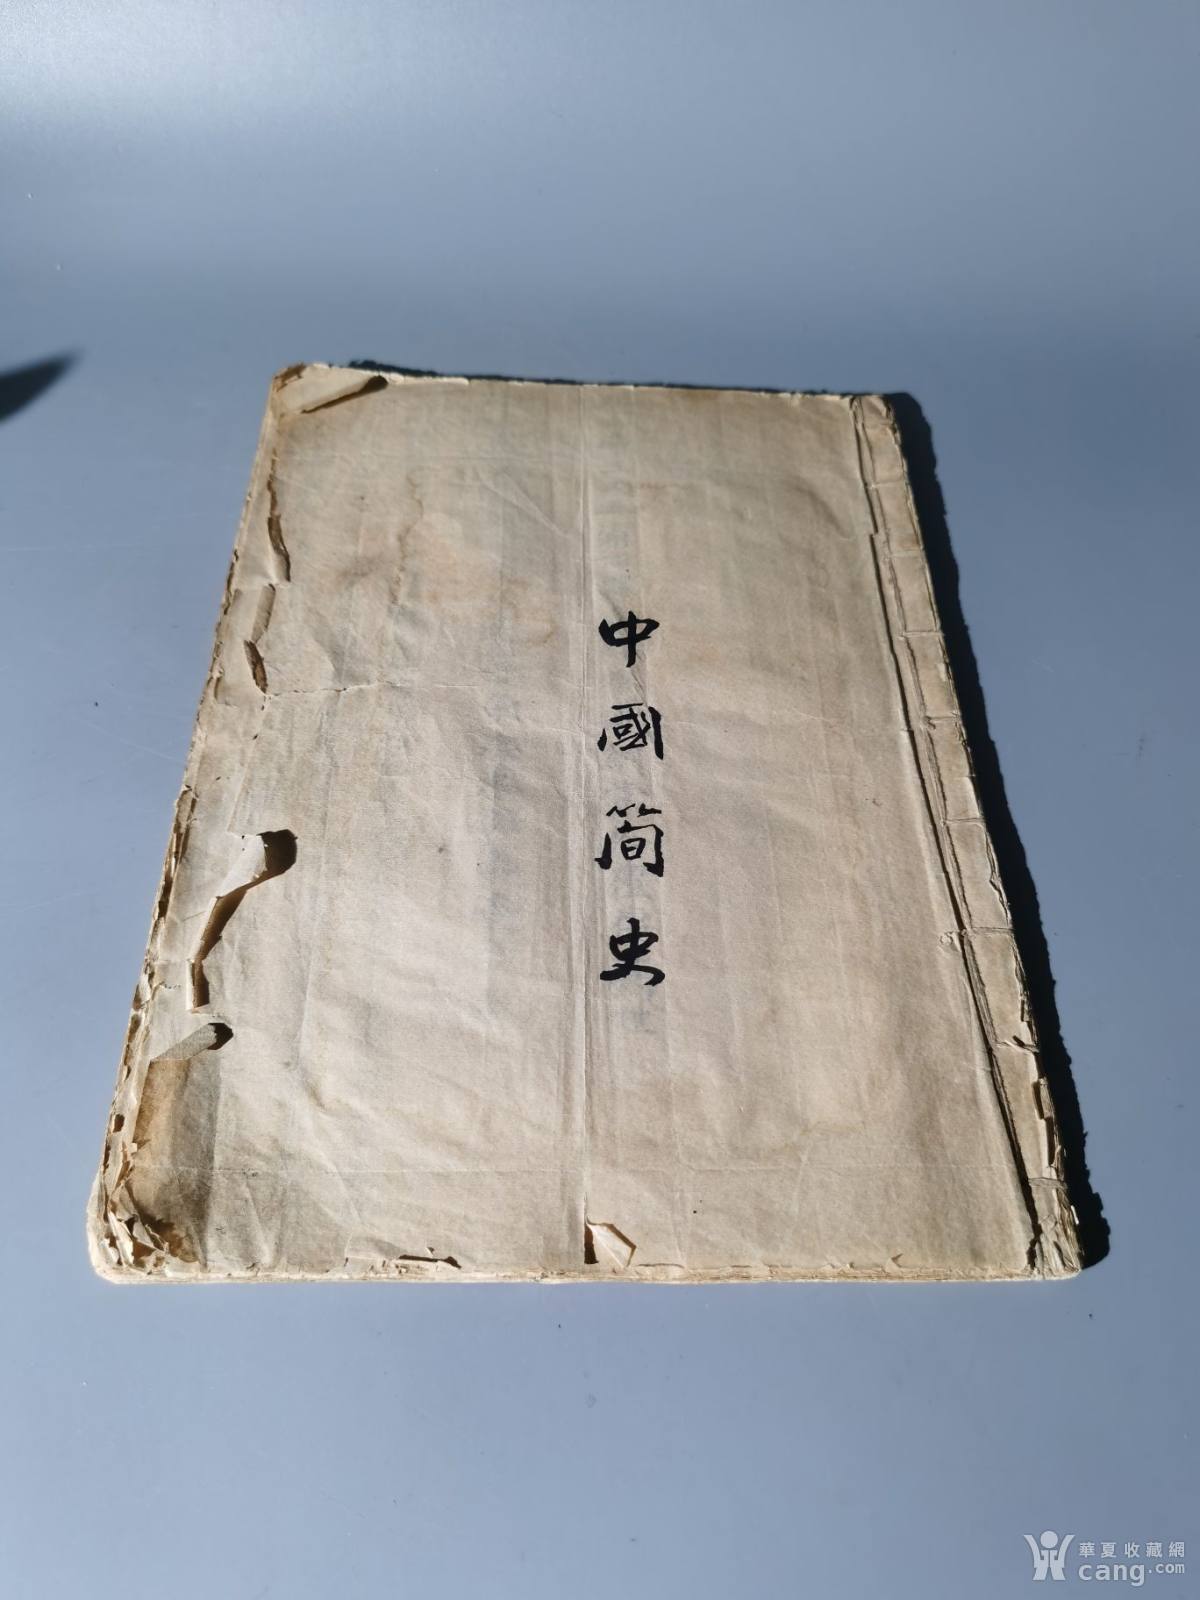 中國简史
華夏收藏網
cang.com